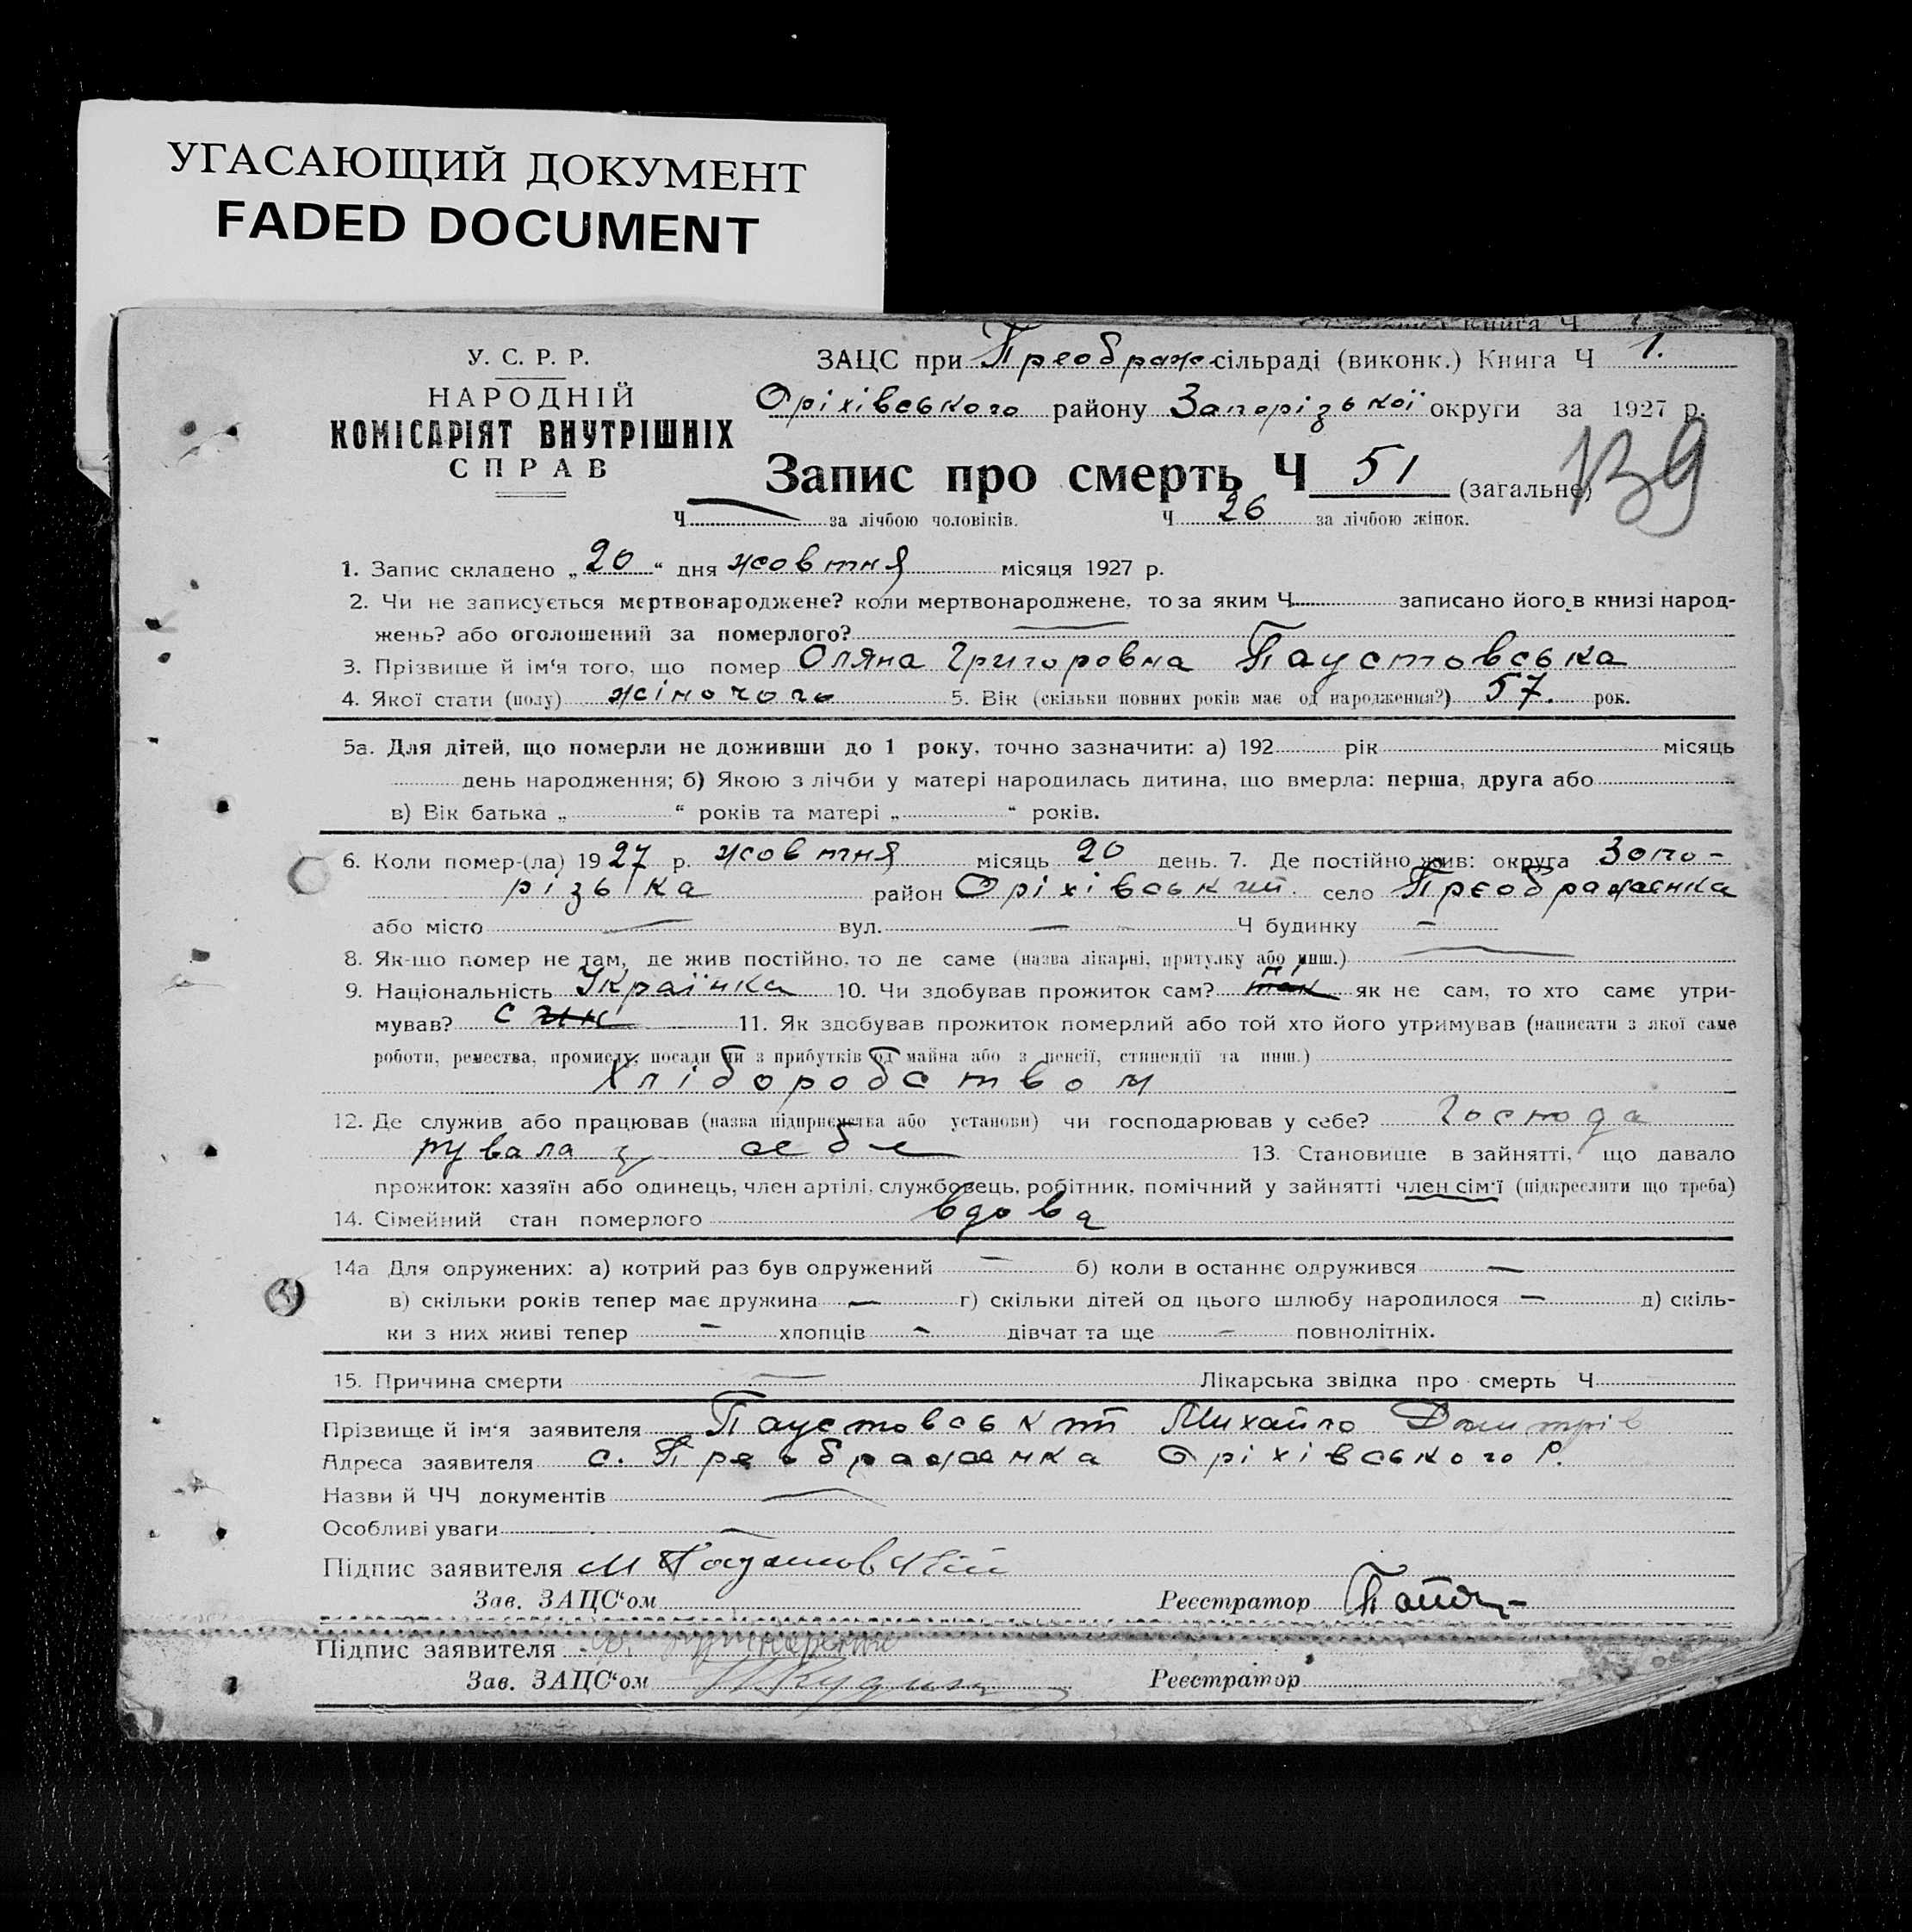 УГАСАЮЩИЙ ДОКУМЕНТ
FADED DOCUMENT
книга Ч
У. С. Р. Р.
НАРОДНІЙ
КОМІСАРІЯТ ВНУТРІШНІХ
СПРАВ
ЗАЦС при Преображ сільраді (виконк.) Книга Ч 1.
Оріхівського району Запорізької округи за 1927 р.
139
Запис про смерть Ч 51 (загальне)
Ч — за лічбою чоловіків. Ч 26 за лічбою жінок.
1. Запис складено „20“ дня жовтня місяця 1927 р.
2. Чи не записується мертвонароджене? коли мертвонароджене, то за яким Ч записано його в книзі народ-
жень? або оголошений за померлого? —
3. Прізвище й ім‘я того, що помер Оляна Григоровна Паустовська
4. Якої стати (полу) жіночого 5. Вік (скільки повних років має од народження?) 57. рок.
5а. Для дітей, що померли не доживши до 1 року, точно зазначити: а) 192 рік місяць
день народження; б) Якою з лічби у матері народилась дитина, що вмерла: перша, друга або
в) Вік батька „ “ років та матері „ “ років.
6. Коли помер-(ла) 1927 р. жовтня місяць 20 день. 7. Де постійно жив: округа Запо-
різька район Оріхівський. село Преображенка
або місто — вул. — Ч будинку —
8. Як-що помер не там, де жив постійно, то де саме (назва лікарні, притулку або инш.) —
9. Національність Українка 10. Чи здобував прожиток сам? так як не сам, то хто саме утри-
мував? син 11. Як здобував прожиток померлий або той хто його утримував (написати з якої саме
роботи, ремества, промислу, посади чи з прибутків од майна або з пенсії, стипендії та инш.)
Хліборобством
12. Де служив або працював (назва підприємства або установи) чи господарював у себе? Господа
рувала у себе 13. Становище в зайнятті, що давало
прожиток: хазяїн або одинець, член артілі, службовець, робітник, помічний у зайнятті член сім‘ї (підкреслити що треба)
14. Сімейний стан померлого вдова
14а Для одружених: а) котрий раз був одружений — б) коли в останнє одружився —
в) скільки років тепер має дружина — г) скільки дітей од цього шлюбу народилося — д) скіль-
ки з них живі тепер — хлопців — дівчат та ще — повнолітніх.
15. Причина смерти — Лікарська звідка про смерть Ч
Прізвище й ім‘я заявителя Паустовський Михайло Дмитрів
Адреса заявителя с. Преображенка Оріхівського Р.
Назви й ЧЧ документів —
Особливі уваги —
Підпис заявителя М
Зав. ЗАЦС‘ом Реєстратор
Підпис заявителя
Зав. ЗАЦС‘ом Реєстратор